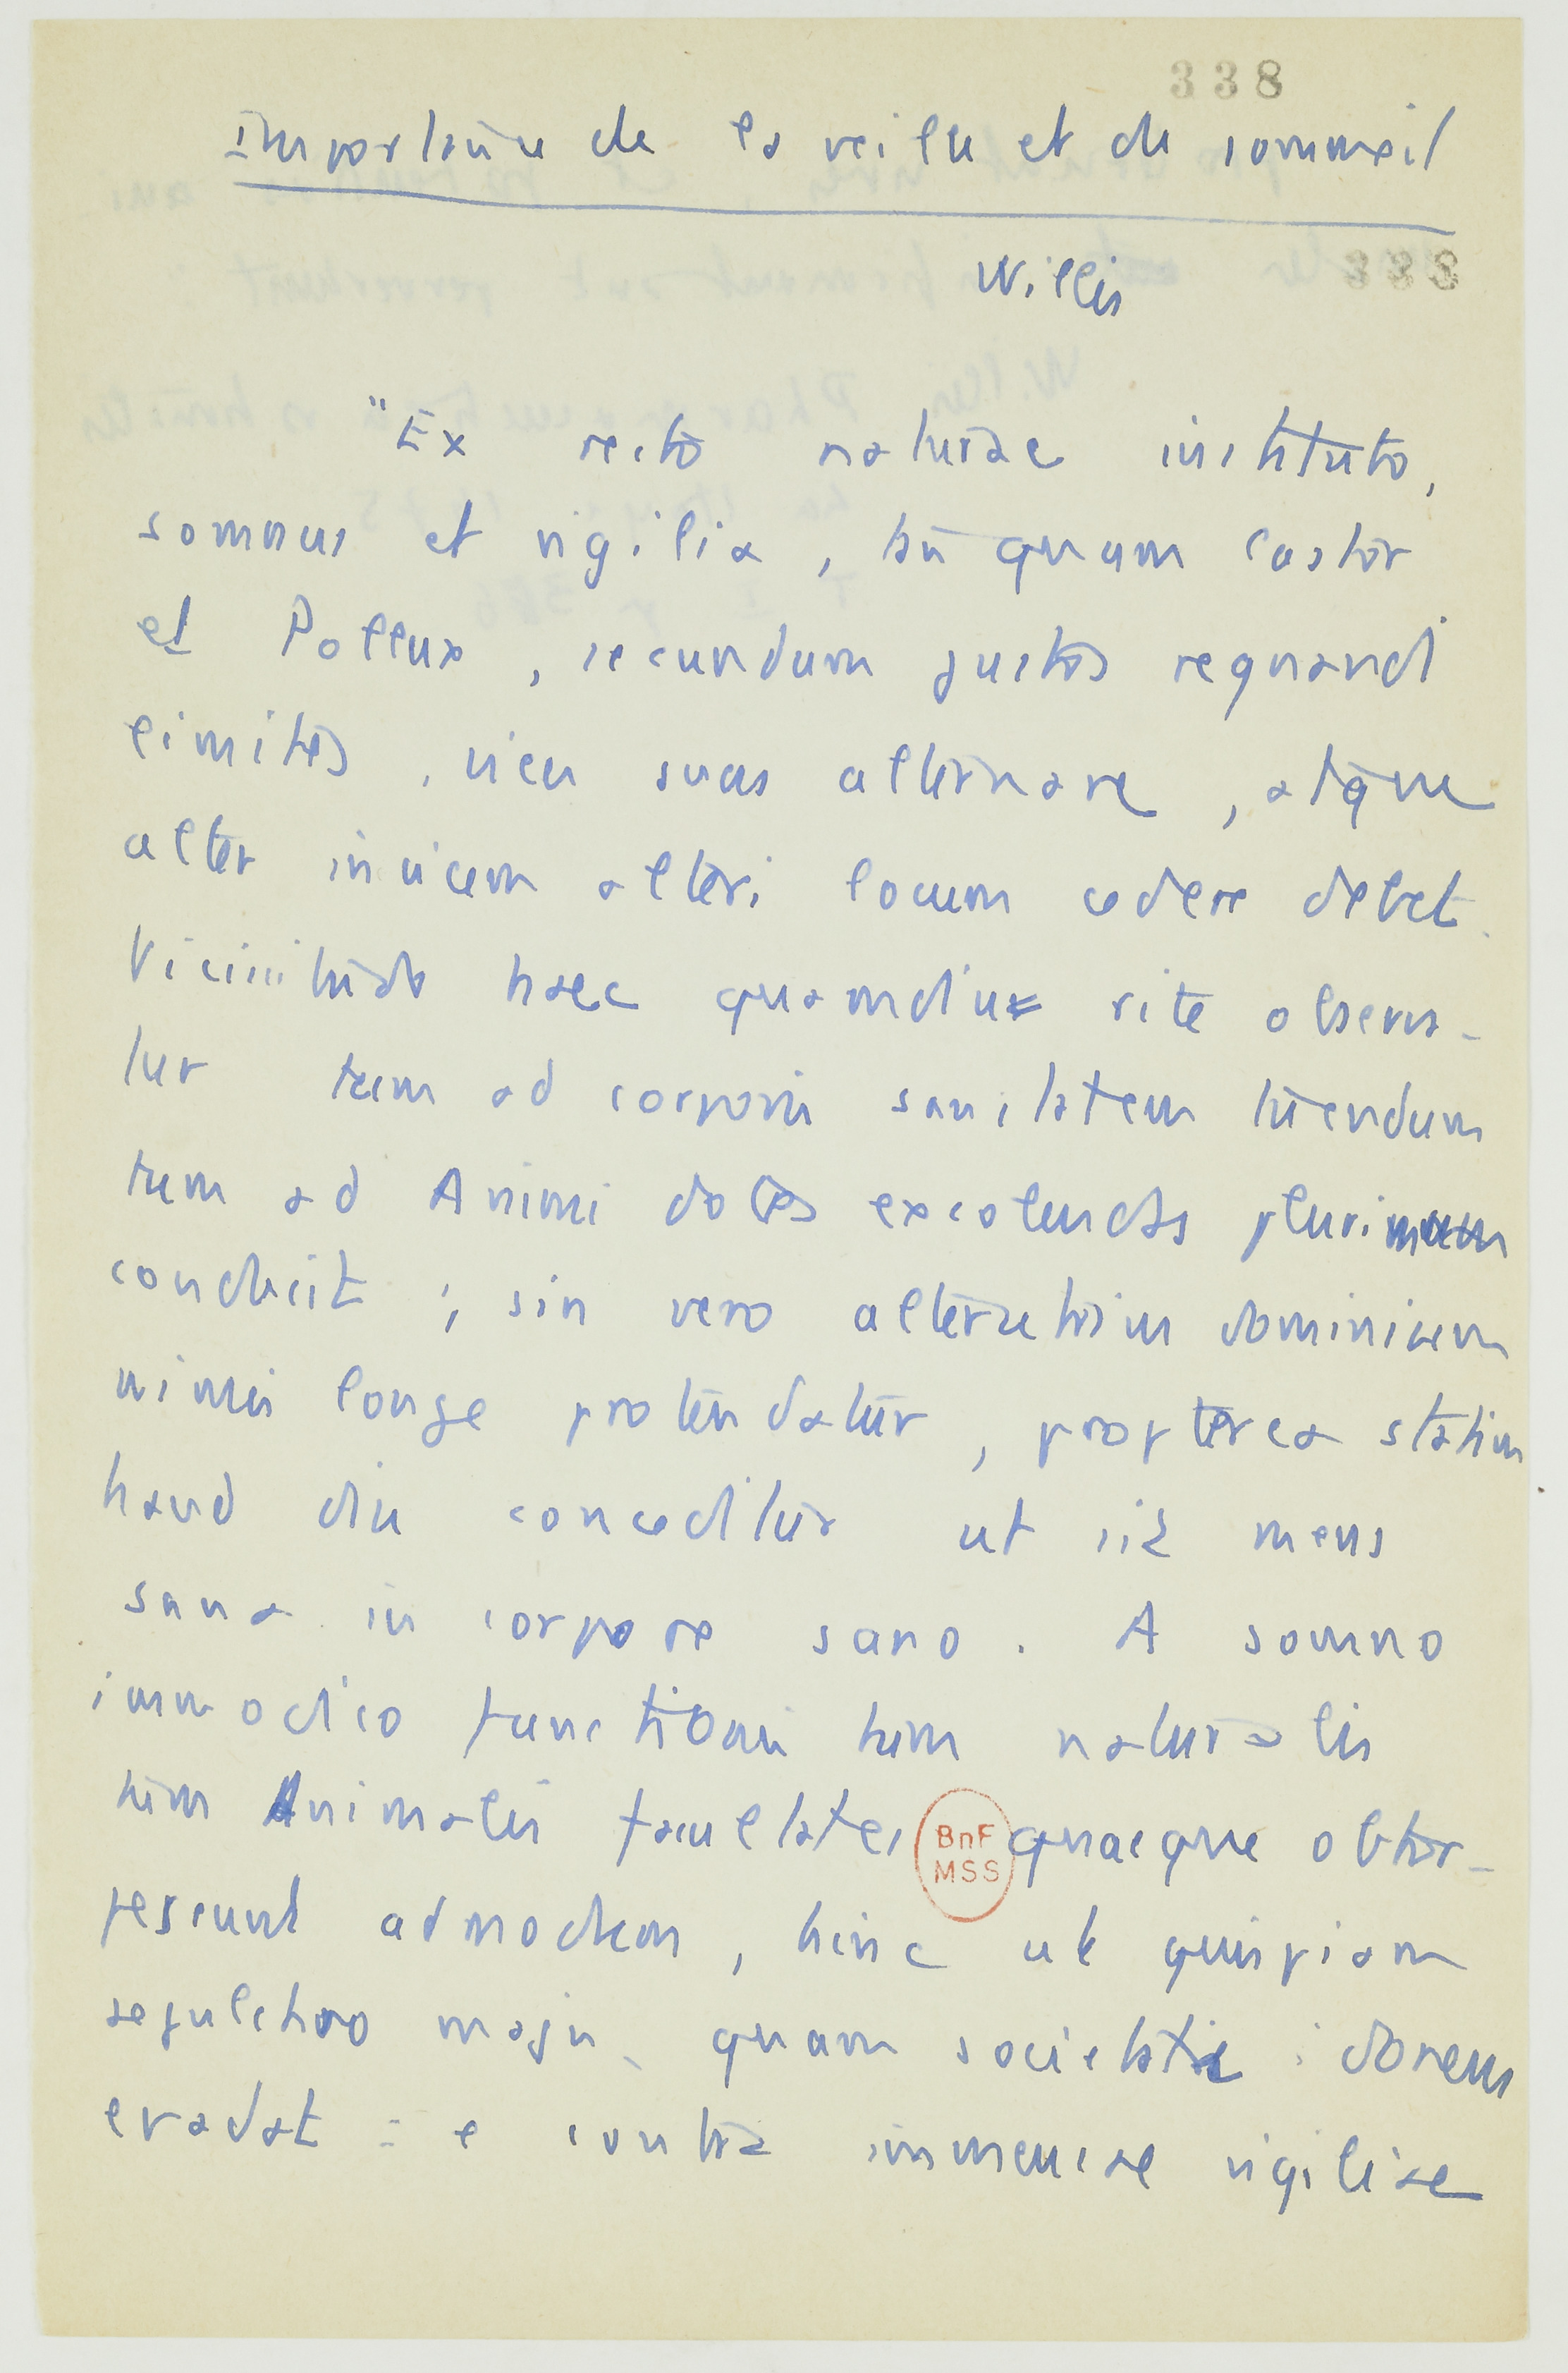 338
Importance de la veille et du sommeil
Willis
333
"Ex recto naturae instituto,
somnus et vigilia, tanquam Castor
et Pollux, secundum justos regnandi
limites, vices suas alternare, atque
alter invicem alteri locum cedere debet.
Vicissitudo haec quamdiu rite observa-
tur tum ad corporis sanitatem tuendam
tum ad Animi dotes excolendas plurimum
conducit ; sin vero alterutrius dominium
nimis longe protendatur, propterea statim
haud diu conceditur ut sit mens
sana in corpore sano. A somno
immodico functionis tum naturalis
tum Animalis facultates quaeque obtor-
pescunt admodum, hinc ut quispiam
sepulchro magis quam societati idoneus
evadat : e contra immensae vigiliae
BnF
MSS